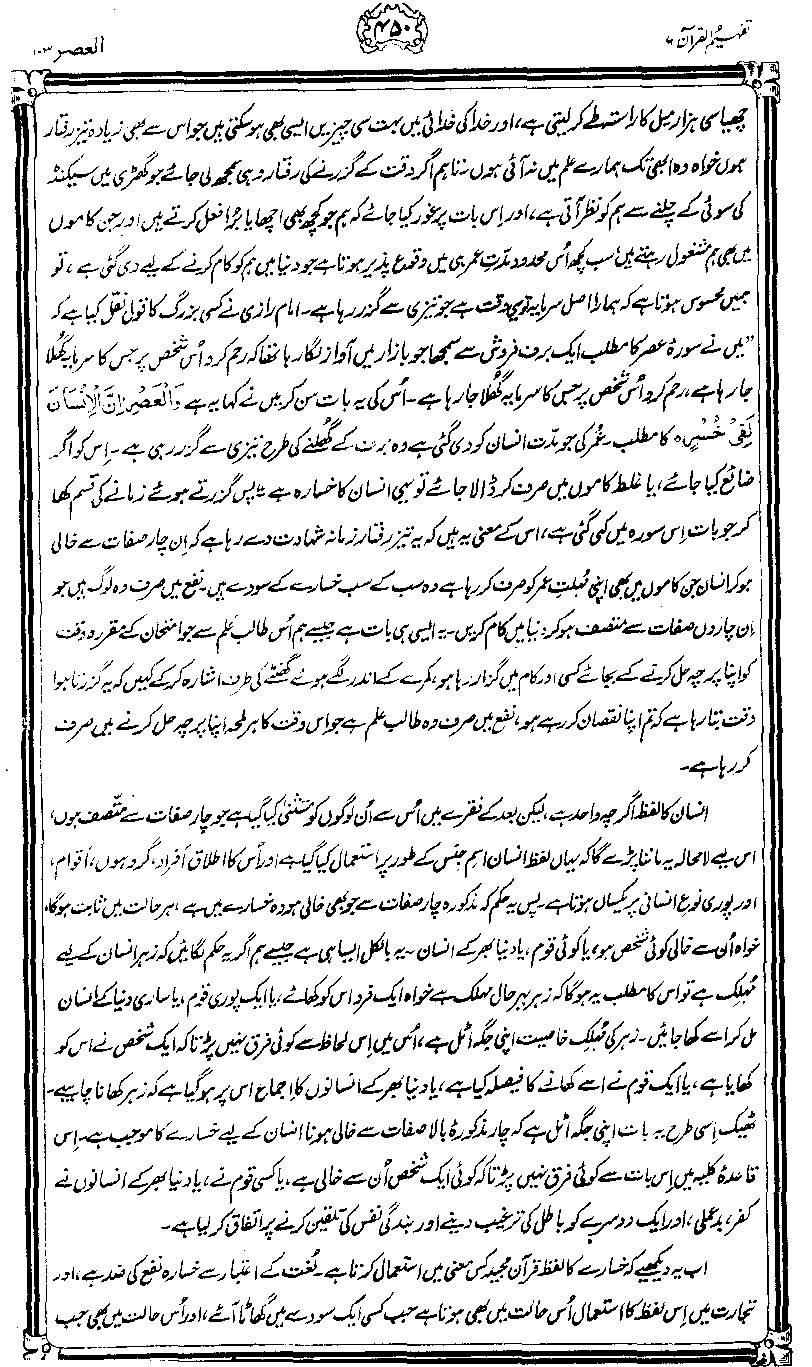 تفہیم القرآن ۶
۴۵۰
العصر ۱۰۳
چھیاسی ہزار میل کا راستہ طے کر لیتی ہے، اور خدا کی خدائی میں بہت سی چیزیں ایسی بھی ہو سکتی ہیں جو اس سے بھی زیادہ تیز رفتار
ہوں خواہ وہ ابھی تک ہمارے علم میں نہ آئی ہوں۔ تاہم اگر وقت کے گزرنے کی رفتار وہی سمجھ لی جائے جو گھڑی میں سیکنڈ
کی سوئی کے چلنے سے ہم کو نظر آتی ہے، اور اِس بات پر غور کیا جائے کہ ہم جو کچھ بھی اچھا یا بُرا فعل کرتے ہیں اور جن کاموں
میں بھی ہم مشغول رہتے ہیں سب کچھ اُس محدود مدّتِ عمر ہی میں وقوع پذیر ہوتا ہے جو دنیا میں ہم کو کام کرنے کے لیے دی گئی ہے، تو
ہمیں محسوس ہوتا ہے کہ ہمارا اصل سرمایہ تو یہی وقت ہے جو تیزی سے گزر رہا ہے۔ امام رازی نے کسی بزرگ کا قول نقل کیا ہے کہ
”میں نے سورۂ عصر کا مطلب ایک برف فروش سے سمجھا جو بازار میں آواز لگا رہا تھا کہ رحم کرو اُس شخص پر جس کا سرمایہ گھُلا
جا رہا ہے، رحم کرو اُس شخص پر جس کا سرمایہ گھُلا جا رہا ہے۔ اُس کی یہ بات سن کر میں نے کہا یہ ہے وَالْعَصْرِ اِنَّ الْاِنْسَانَ
لَفِیْ خُسْرٍ ہ کا مطلب۔ عمُر کی جو مدّت انسان کو دی گئی ہے وہ برف کے گھُلنے کی طرح تیزی سے گزر رہی ہے۔ اِس کو اگر
ضائع کیا جائے، یا غلط کاموں میں صرف کر ڈالا جائے تو یہی انسان کا خسارہ ہے“ پس گزرتے ہوئے زمانے کی قسم کھا
کر جو بات اِس سورہ میں کہی گئی ہے، اس کے معنی یہ ہیں کہ یہ تیز رفتار زمانہ شہادت دے رہا ہے کہ اِن چار صفات سے خالی
ہو کر انسان جن کاموں میں بھی اپنی مُہلتِ عمر کو صرف کر رہا ہے وہ سب کے سب خسارے کے سودے ہیں۔ نفع میں صرف وہ لوگ ہیں جو
اِن چاروں صفات سے متصف ہو کر دنیا میں کام کریں۔ یہ ایسی ہی بات ہے جیسے ہم اُس طالب علم سے جو امتحان کے مقررہ وقت
کو اپنا پرچہ حل کرنے کے بجائے کسی اور کام میں گزار رہا ہو، کمرے کے اندر لگے ہوئے گھنٹے کی طرف اشارہ کر کے کہیں کہ یہ گزرتا ہوا
وقت بتا رہا ہے کہ تم اپنا نقصان کر رہے ہو، نفع میں صرف وہ طالب علم ہے جو اس وقت کا ہر لمحہ اپنا پرچہ حل کرنے میں صرف
کر رہا ہے۔
انسان کا لفظ اگرچہ واحد ہے، لیکن بعد کے فقرے میں اُس سے اُن لوگوں کو مستثنیٰ کیا گیا ہے جو چار صفات سے متّصف ہوں،
اس لیے لا محالہ یہ ماننا پڑے گا کہ یہاں لفظ انسان اسمِ جنس کے طور پر استعمال کیا گیا ہے اور اُس کا اطلاق افراد، گروہوں، اقوام،
اور پوری نوعِ انسانی پر یکساں ہوتا ہے۔ پس یہ حکم کہ مذکورہ چار صفات سے جو بھی خالی ہو وہ خسارے میں ہے، ہر حالت میں ثابت ہوگا،
خواہ اُن سے خالی کوئی شخص ہو، یا کوئی قوم، یا دنیا بھر کے انسان۔ یہ بالکل ایسا ہی ہے جیسے ہم اگر یہ حکم لگائیں کہ زہر انسان کے لیے
مُہلِک ہے تو اس کا مطلب یہ ہوگا کہ زہر بہر حال مہلک ہے خواہ ایک فرد اس کو کھائے، یا ایک پوری قوم، یا ساری دنیا کے انسان
مل کر اسے کھا جائیں۔ زہر کی مُہلِک خاصیت اپنی جگہ اٹل ہے، اُس میں اِس لحاظ سے کوئی فرق نہیں پڑتا کہ ایک شخص نے اس کو
کھایا ہے، یا ایک قوم نے اسے کھانے کا فیصلہ کیا ہے، یا دنیا بھر کے انسانوں کا اجماع اس پر ہو گیا ہے کہ زہر کھانا چاہیے۔
ٹھیک اِسی طرح یہ بات اپنی جگہ اٹل ہے کہ چار مذکورۂ بالا صفات سے خالی ہونا انسان کے لیے خسارے کا موجب ہے۔ اِس
قاعدۂ کلیہ میں اِس بات سے کوئی فرق نہیں پڑتا کہ کوئی ایک شخص اُن سے خالی ہے، یا کسی قوم نے، یا دنیا بھر کے انسانوں نے
کفر، بدعملی، اور ایک دوسرے کو باطل کی ترغیب دینے اور بندگیِ نفس کی تلقین کرنے پر اتفاق کر لیا ہے۔
اب یہ دیکھیے کہ خسارے کا لفظ قرآن مجید کس معنی میں استعمال کرتا ہے۔ لُغت کے اعتبار سے خسارہ نفع کی ضد ہے، اور
تجارت میں اِس لفظ کا استعمال اُس حالت میں بھی ہوتا ہے جب کسی ایک سودے میں گھاٹا آئے، اور اُس حالت میں بھی جب